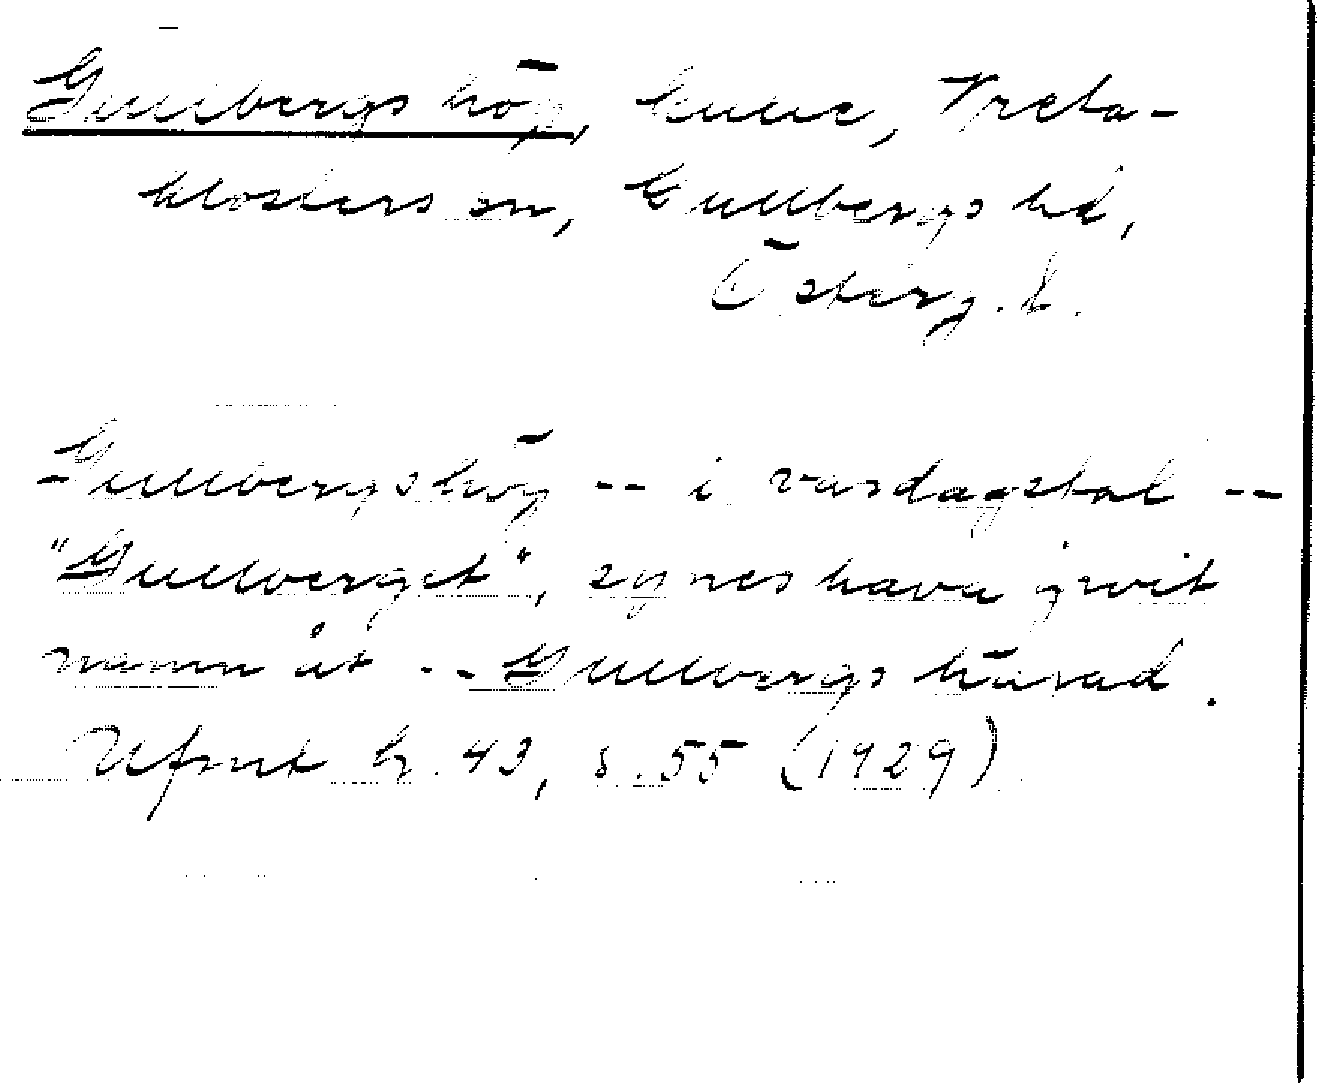 Gullbergs hög, kulle, Vreta-
klosters sn, Gullbergs hd,
Österg. l.
Gullbergshög -- i vardagstal --
"Gullberget", synes hava givit
namn åt -- Gullbergs härad.
h. 43, s. 55 (1929)